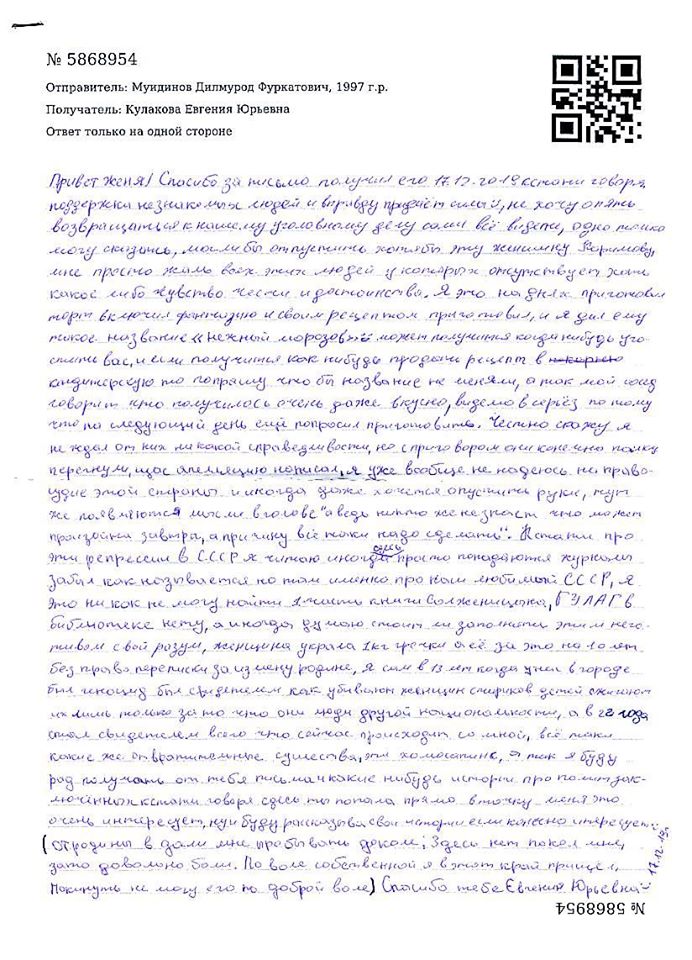 № 5868954
Отправитель: Муидинов Дилмурод Фуркатович, 1997 г.р.
Получатель: Кулакова Евгения Юрьевна
Ответ только на одной стороне
Привет Женя! Спасибо за письмо получил его 17.12.го 19 кстати говоря
поддержка незнакомых людей и вправду придаёт силы, не хочу опять
возвращаться к нашему уголовному делу сами всё видели, одно только
могу сказать, могли бы отпустить хотябы эту женщину Каримову,
мне просто жаль всех этих людей у которых отсутствует хоть
какое либо чувство чести и достоинства. Я это на днях приготовил
торт включил фантазию и своим рецептом приготовил, и я дал ему
такое название "нежный морозов" может получится когда нибудь уго-
стить вас, и если получится как нибудь продать рецепт в
кондитерскую то попрошу что бы название не меняли, а так мой сосед
говорит что получилось очень даже вкусно, видемо в серёз потому
что на следующий день ещё попросил приготовить. Честно скажу я
не ждал от них никакой справедливости, но с приговором они конечно палку
перегнули, щас апеляцию написал, я уже вообще не надеюсь на право-
судие этой страны и иногда даже хочется опустить руки, тут
же появляются мысли в голове "а ведь никто же не знает что может
произойти завтра, а причику всё таки надо сделать". Кстати про
эти репрессии в СССР я читаю иногда здесь просто попадаются журналы
забыл как называется но там именно про наш любимый СССР, я
это ни как не могу найти 1 часть книги Солженицына, ГУЛАГ в
библиотеке нету, а иногда думаю стоит ли заполнять этим нега-
тивом свой разум, женщина украла 1кг гречки а её за это на 10 лет
без права переписки за измену родине, Я сам в 13 лет когда у нас в городе
был геноцид был свидетелем как убивают женщин стариков детей сжигают
их лишь только за то что они люди другой национальности, а в 22 года
стал свидетелем всего что сейчас происходит со мной, всё таки
какие же отвратительные существа, эти хомосапинс, а так я буду
рад получать от тебя письма и какие нибудь истории про политзак-
люченных кстати говоря здесь ты попала прямо в точку меня это
очень интересует, ну и буду рассказывать свои истории если конечно интересует
(От родины в дали мне пробывать доколе; Здесь нет покоя мне,
зато довольно боли. По воле собственной я в этот край пришел,
Покинуть не могу его по доброй воле) Спасибо тебе Евгения Юрьевна
17.12.19г.
№ 5868954